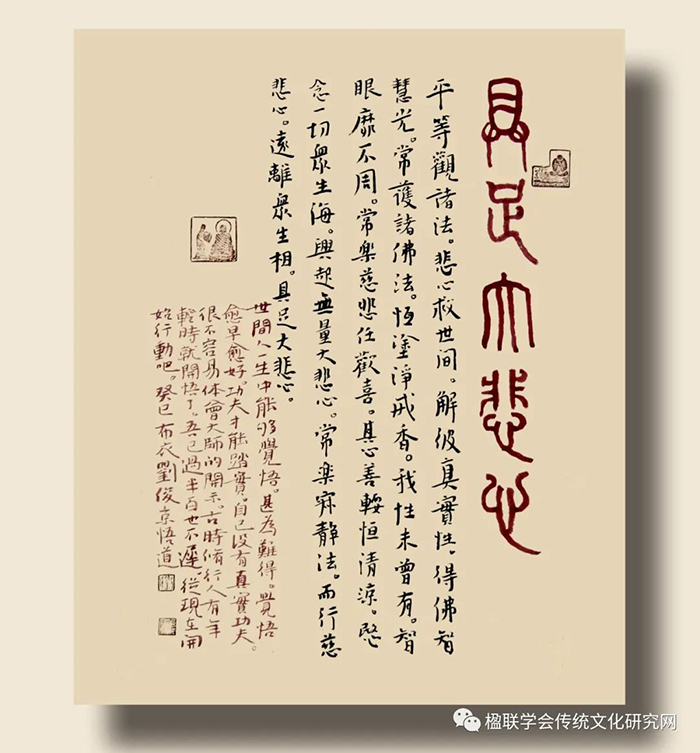 具足大悲心
平等觀諸法。悲心救世间。解彼真實性，得佛智
慧光。常護諸佛法。恆塗淨戒香。我性未曾有。智
眼靡不周。常樂慈悲任歡喜。其心善輭恒清涼。愍
念一切眾生海。興起無量大悲心。常樂寂静法。而行慈
悲心。遠離眾生相。具足大悲心。
世間人一生中能够覺悟。甚為難得。覺悟
愈早愈好。功夫才能踏實。自己没有真實功夫。
很不容易体會大師的開示。古時脩行人有年
輕時就開悟了。吾已過半百也不遲。從現在開
始行動吧。癸巳布衣劉俊京悟道
楹联学会传统文化研究网